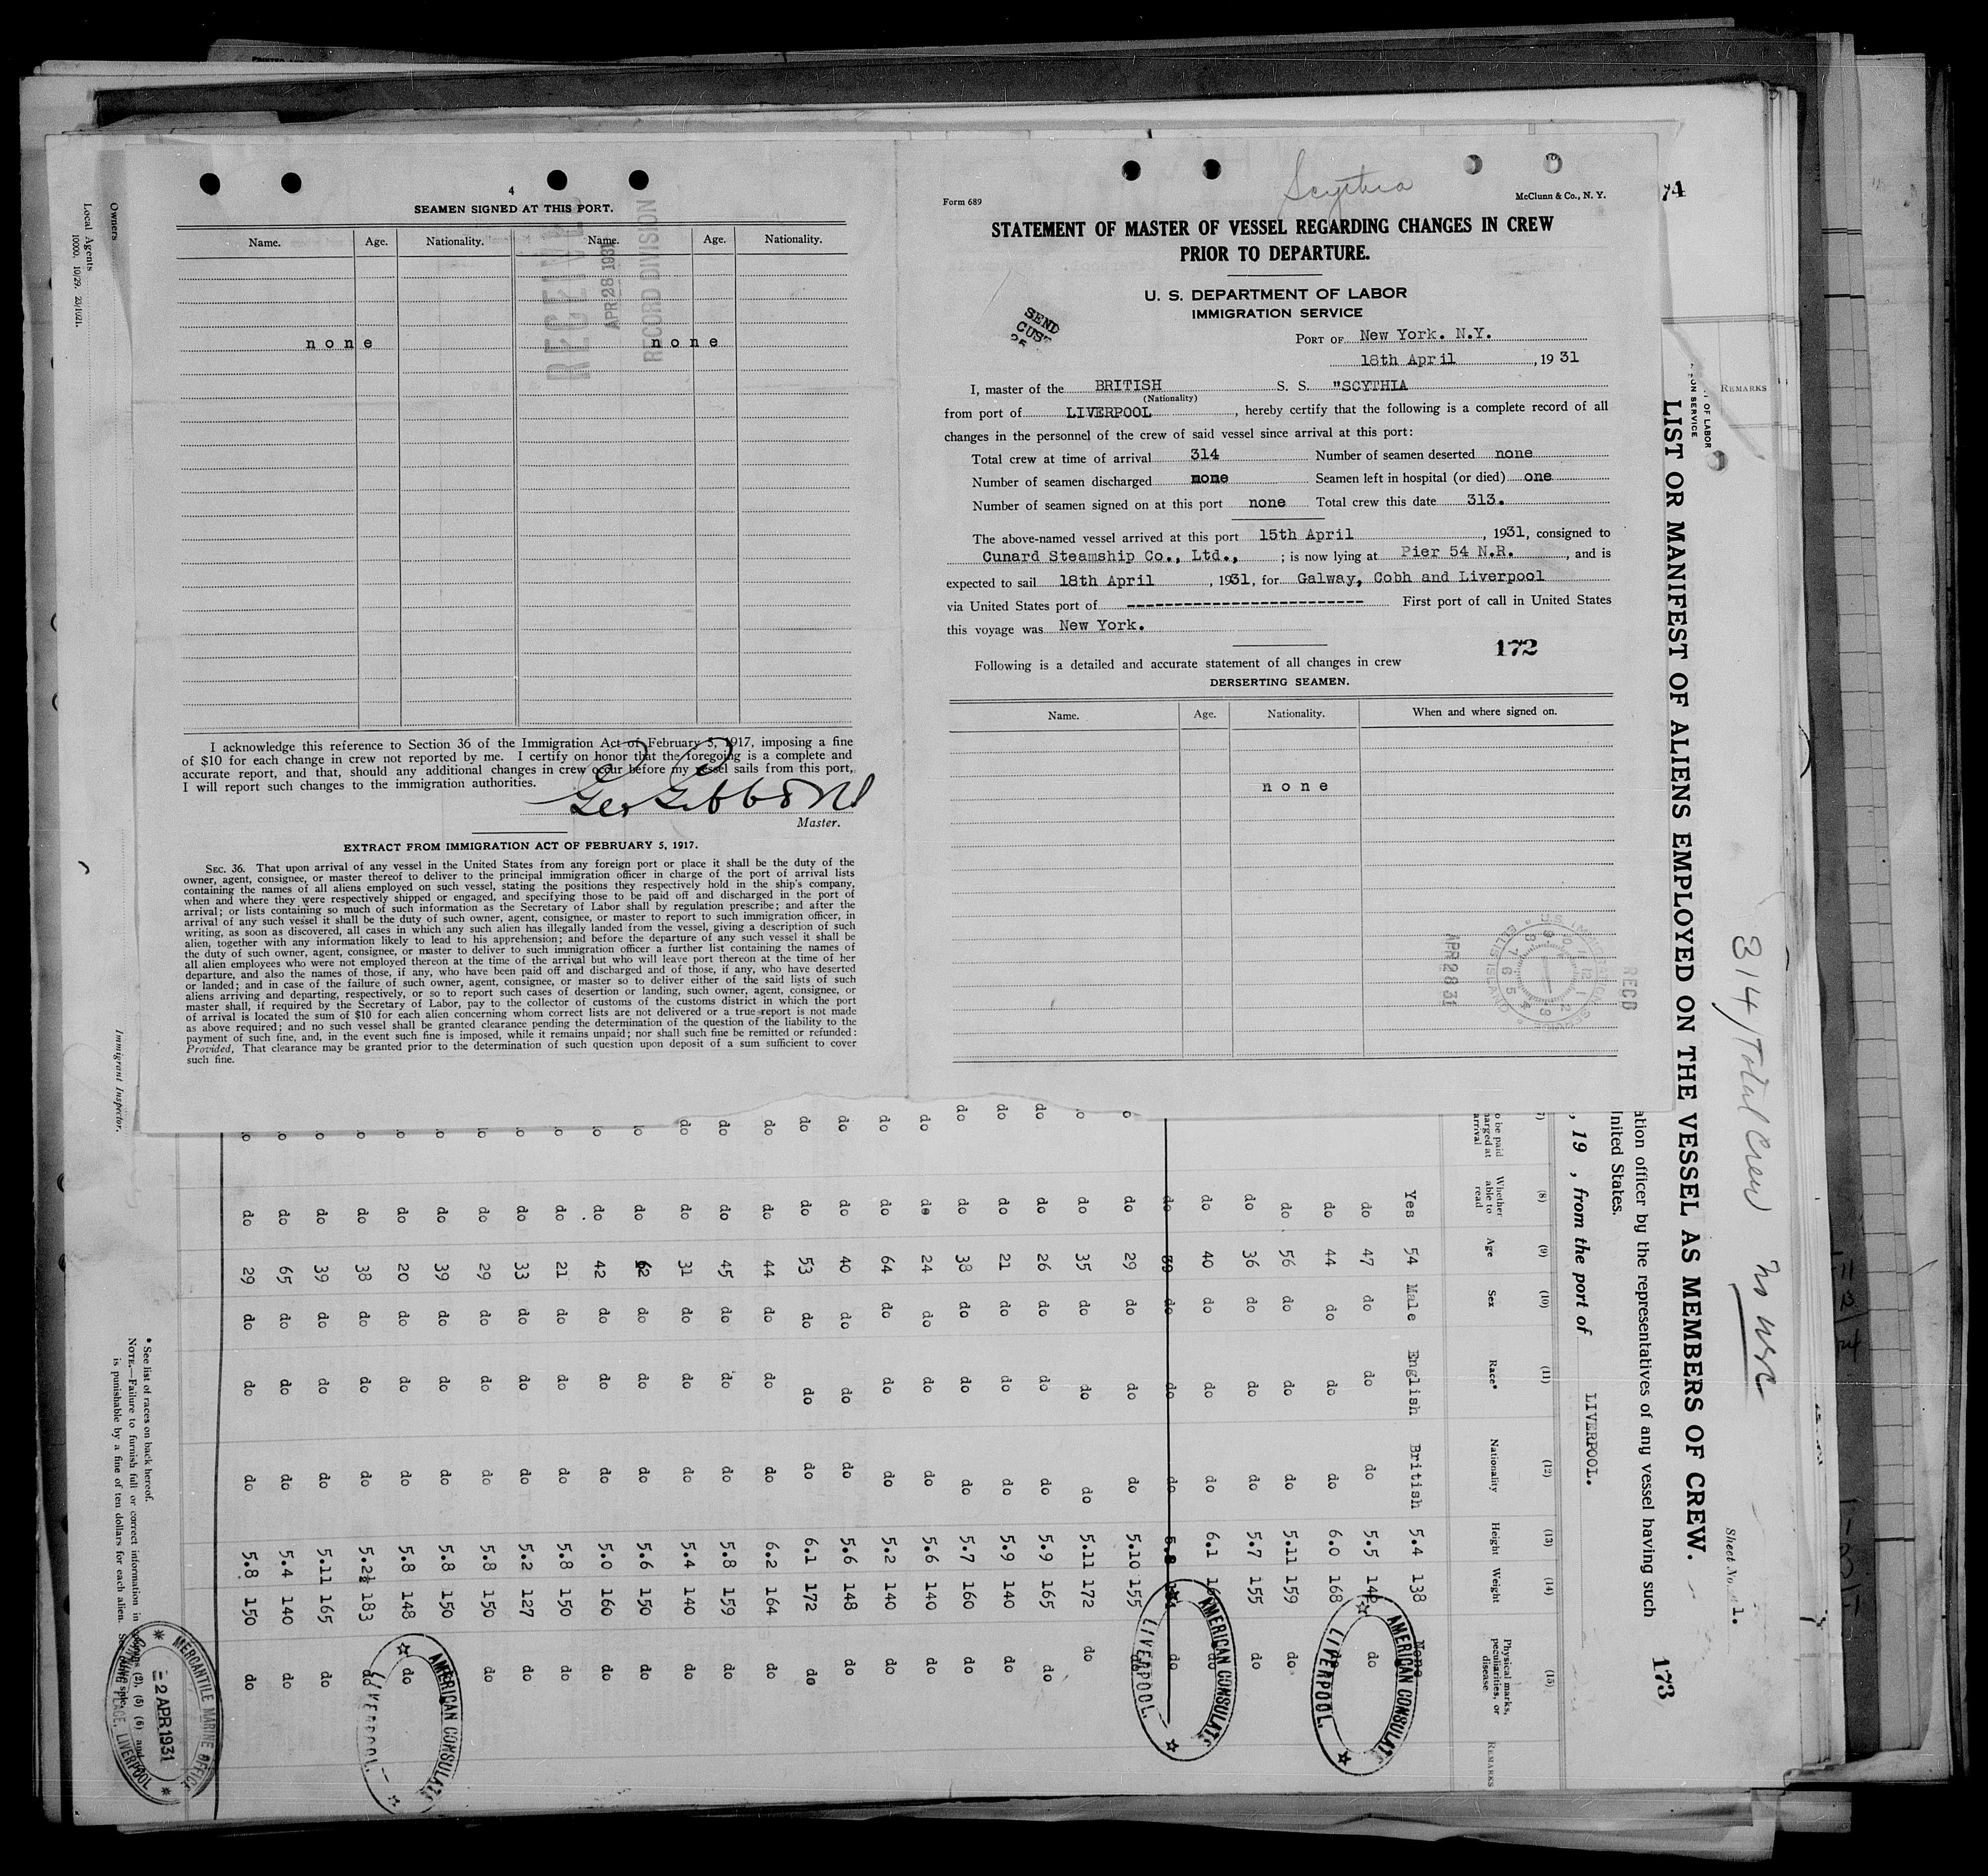 4
SEAMEN SIGNED AT THIS PORT.
Name. Age. Nationality. Name. Age. Nationality.
none none
RECEIVED
APR 28 1931
RECORD DIVISION
I acknowledge this reference to Section 36 of the Immigration Act of February 5, 1917, imposing a fine
of $10 for each change in crew not reported by me. I certify on honor that the foregoing is a complete and
accurate report, and that, should any additional changes in crew occur before my vessel sails from this port,
I will report such changes to the immigration authorities.
Geo Gibbons
Master.
EXTRACT FROM IMMIGRATION ACT OF FEBRUARY 5, 1917.
SEC. 36. That upon arrival of any vessel in the United States from any foreign port or place it shall be the duty of the
owner, agent, consignee, or master thereof to deliver to the principal immigration officer in charge of the port of arrival lists
containing the names of all aliens employed on such vessel, stating the positions they respectively hold in the ship's company,
when and where they were respectively shipped or engaged, and specifying those to be paid off and discharged in the port of
arrival; or lists containing so much of such information as the Secretary of Labor shall by regulation prescribe; and after the
arrival of any such vessel it shall be the duty of such owner, agent, consignee, or master to report to such immigration officer, in
writing, as soon as discovered, all cases in which any such alien has illegally landed from the vessel, giving a description of such
alien, together with any information likely to lead to his apprehension; and before the departure of any such vessel it shall be
the duty of such owner, agent, consignee, or master to deliver to such immigration officer a further list containing the names of
all alien employees who were not employed thereon at the time of the arrival but who will leave port thereon at the time of her
departure, and also the names of those, if any, who have been paid off and discharged and of those, if any, who have deserted
or landed; and in case of the failure of such owner, agent, consignee, or master so to deliver either of the said lists of such
aliens arriving and departing, respectively, or so to report such cases of desertion or landing, such owner, agent, consignee, or
master shall, if required by the Secretary of Labor, pay to the collector of customs of the customs district in which the port
of arrival is located the sum of $10 for each alien concerning whom correct lists are not delivered or a true report is not made
as above required; and no such vessel shall be granted clearance pending the determination of the question of the liability to the
payment of such fine, and, in the event such fine is imposed, while it remains unpaid; nor shall such fine be remitted or refunded:
Provided, That clearance may be granted prior to the determination of such question upon deposit of a sum sufficient to cover
such fine.
Scythia
Form 689
McClunn & Co., N. Y.
STATEMENT OF MASTER OF VESSEL REGARDING CHANGES IN CREW
PRIOR TO DEPARTURE.
U. S. DEPARTMENT OF LABOR
IMMIGRATION SERVICE
SEND
CUST
PORT OF New York. N.Y.
18th April , 1931
I, master of the BRITISH S. S. "SCYTHIA
(Nationality)
from port of LIVERPOOL , hereby certify that the following is a complete record of all
changes in the personnel of the crew of said vessel since arrival at this port:
Total crew at time of arrival 314 Number of seamen deserted none
Number of seamen discharged none Seamen left in hospital (or died) one
Number of seamen signed on at this port none Total crew this date 313.
The above-named vessel arrived at this port 15th April , 1931, consigned to
Cunard Steamship Co., Ltd., ; is now lying at Pier 54 N.R. , and is
expected to sail 18th April , 1931, for Galway, Cobh and Liverpool
via United States port of ------------------------- First port of call in United States
this voyage was New York.
172
Following is a detailed and accurate statement of all changes in crew
DERSERTING SEAMEN.
Name. Age. Nationality. When and where signed on.
none
APR 28 31
RECD
U.S. IMMIGRATION SERVICE
ELLIS ISLAND
74
REMARKS
OF LABOR
ON SERVICE
314 / Total Crew
Sheet No. 1.
LIST OR MANIFEST OF ALIENS EMPLOYED ON THE VESSEL AS MEMBERS OF CREW.
173
ation officer by the representatives of any vessel having such
nited States.
, 19 , from the port of LIVERPOOL.
(8) (9) (10) (11) (12) (13) (14) (15)
o be paid
arged at
arrival
Whether
able to
read
Age Sex Race* Nationality Height Weight
Physical marks,
peculiarities, or
disease
REMARKS
Yes 54 Male English British 5.4 138 None
do 47 do do do 5.5 do
do 44 do do do 6.0 168
do 56 do do do 5.11 159 do
do 36 do do do 5.7 155 do
do 40 do do do 6.1 do
do 39 do do do 5.8 do
do do 29 do do do 5.10 155
do 35 do do do 5.11 172 do
do do 26 do do do 5.9 165 do
do do 21 do do do 5.9 140 do
do do 38 do do do 5.7 160 do
do do 24 do do do 5.6 140 do
do do 64 do do do 5.2 140 do
do do 40 do do do 5.6 148 do
do do 53 do do do 6.1 172 do
do do 44 do do do 6.2 164 do
do do 45 do do do 5.8 159 do
do do 31 do do do 5.4 140 do
do 62 do do do 5.6 150 do
do 42 do do do 5.0 160 do
do 21 do do do 5.8 150 do
do 33 do do do 5.2 127 do
do 29 do do do 5.8 150 do
do 39 do do do 5.8 150
do 20 do do do 5.8 148 do
do 38 do do do 5.2½ 183 do
do 39 do do do 5.11 165 do
do 65 do do do 5.4 140 do
do 29 do do do 5.8 150 do
AMERICAN CONSULATE
LIVERPOOL.
AMERICAN CONSULATE
LIVERPOOL.
AMERICAN CONSULATE
LIVERPOOL.
MERCANTILE MARINE OFFICE
2 APR 1931
CANNING PLACE, LIVERPOOL
* See list of races on back hereof.
NOTE.—Failure to furnish full or correct information in columns (2), (5) (6) and
is punishable by a fine of ten dollars for each alien.
Owners
Local Agents
10000. 10/29. 23/1021.
Immigrant Inspector.